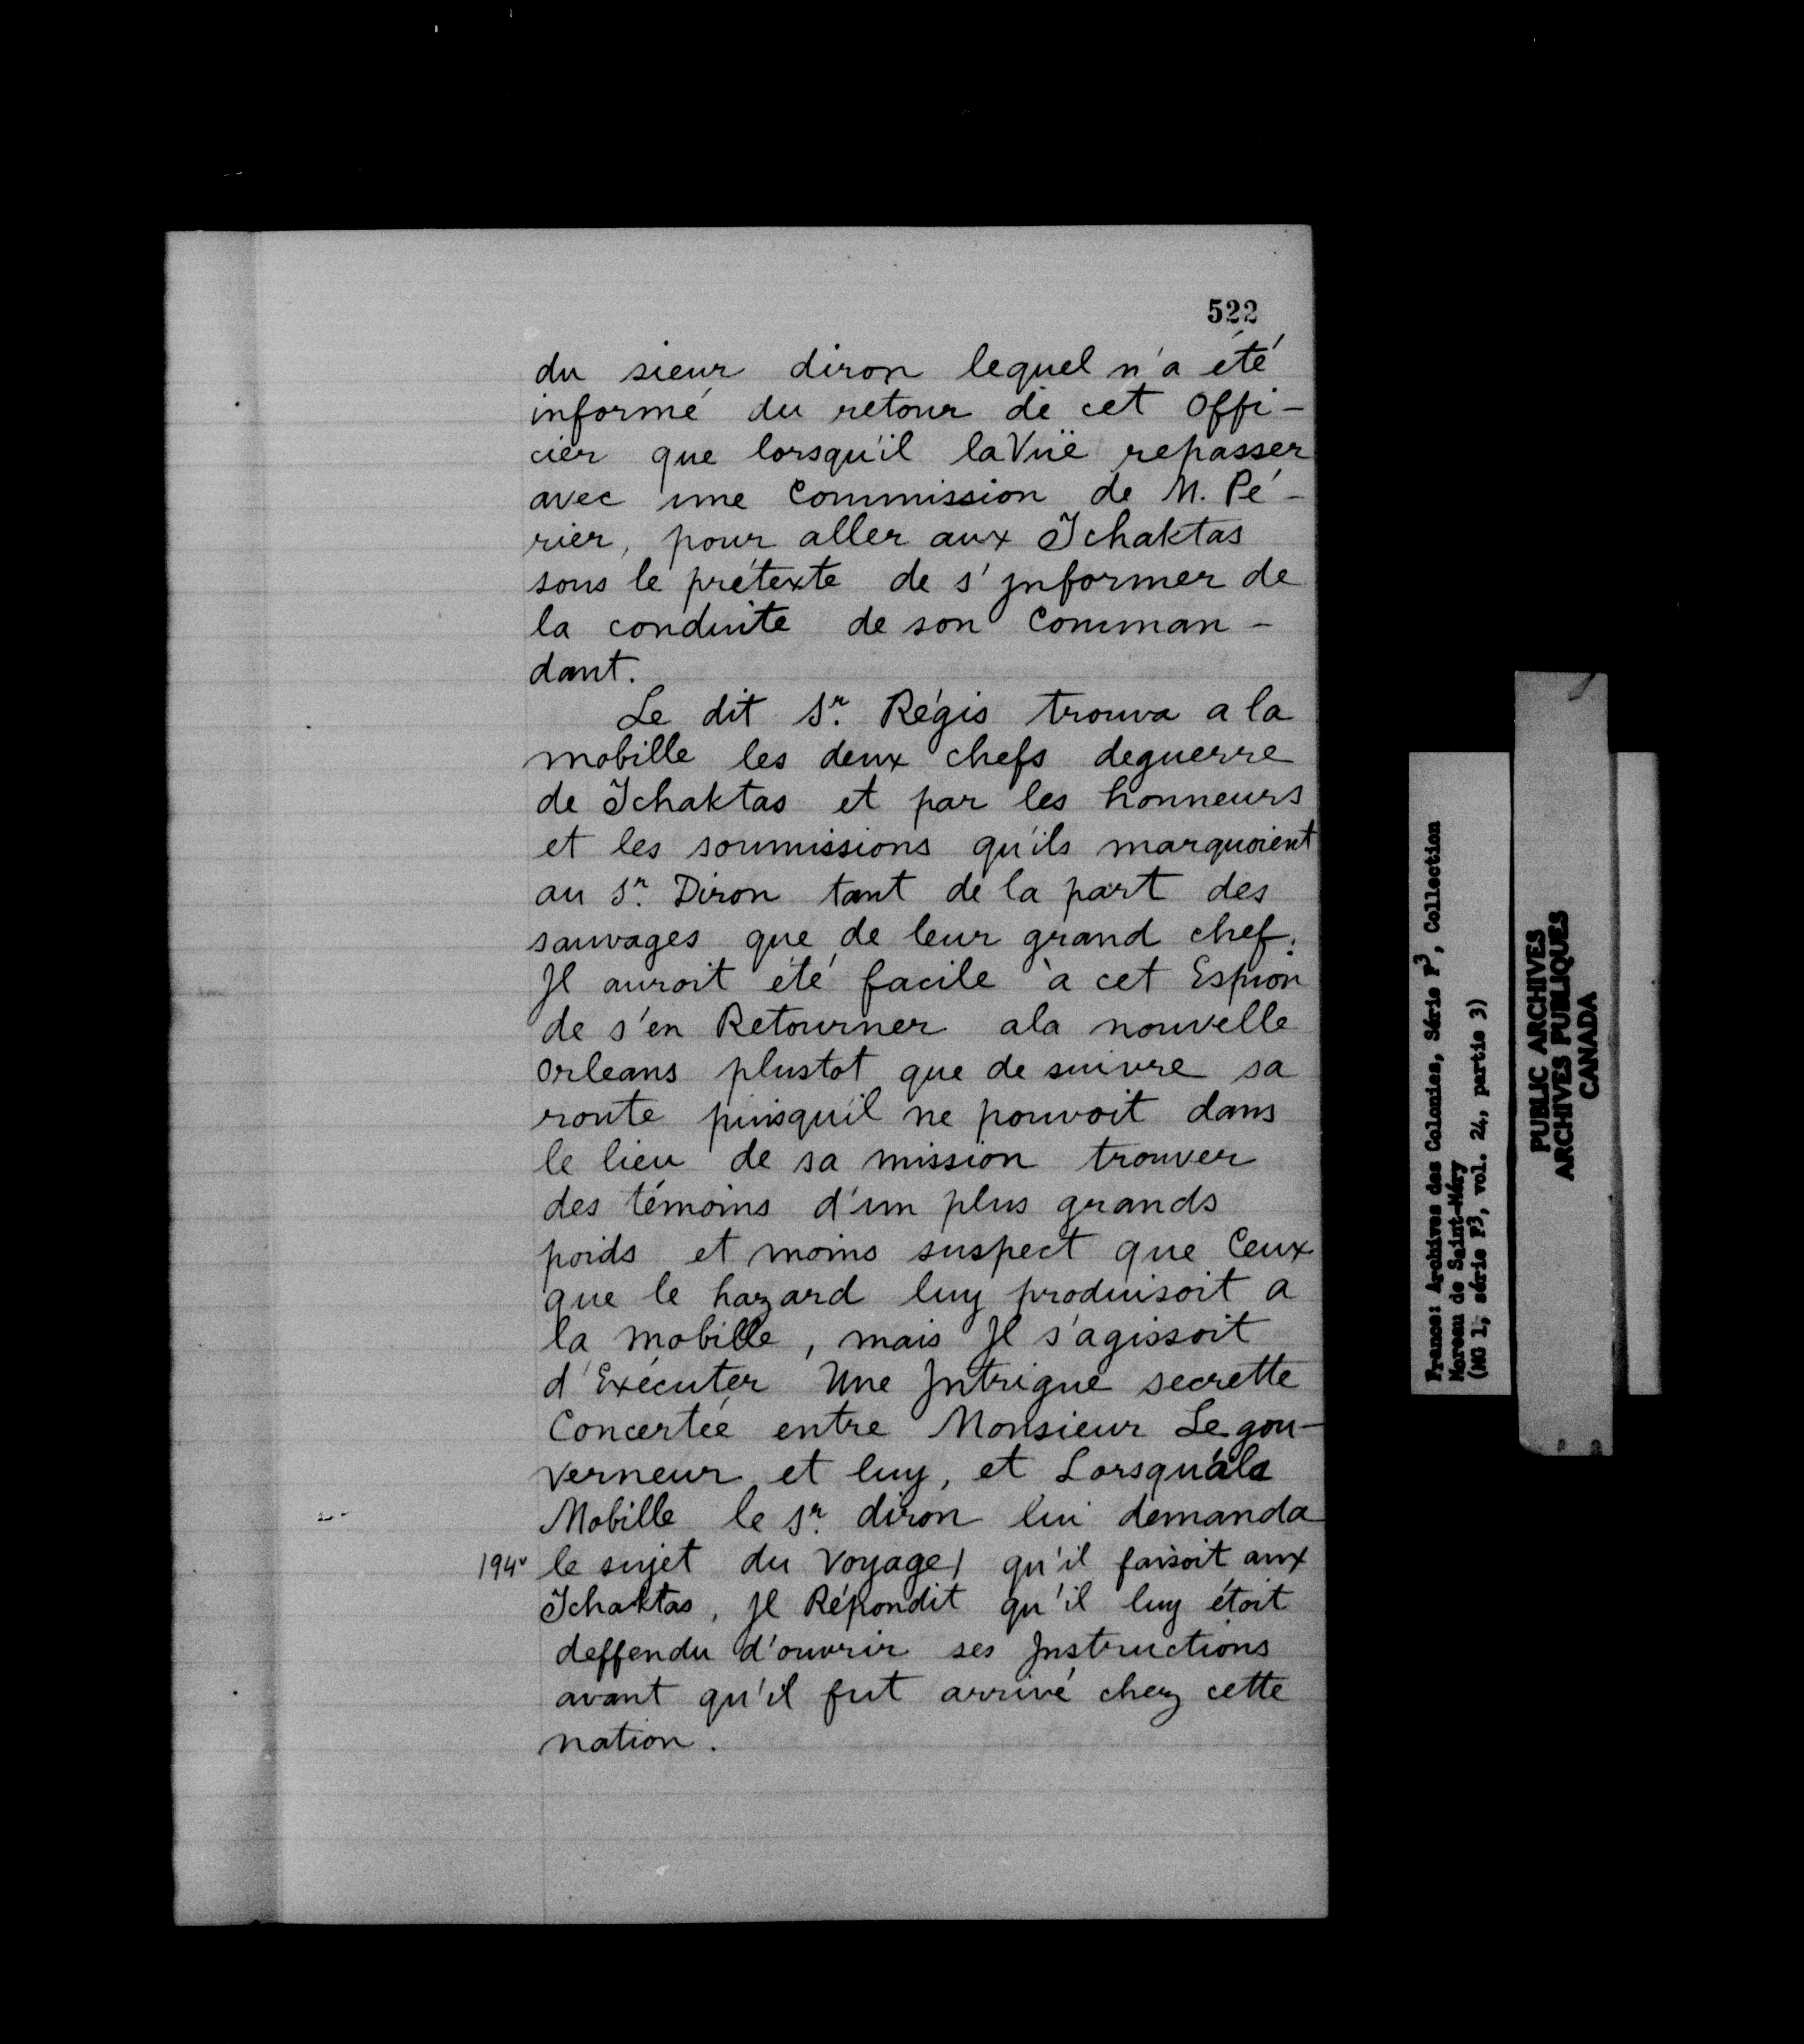 522
du sieur diron lequel n'a été
informé du retour de cet offi-
cier que lorsqu'il la Vüe repasser
avec une Commission de M. Pé-
rier, pour aller aux Tchaktas
sous le prétexte de s'Jnformer de
la conduite de son Comman-
dant.
Le dit Sr. Régis trouva a la
mobille les deux chefs deguerre
de Tchaktas et par les honneurs
et les soumissions qu'ils marquoient
au Sr. Diron tant de la part des
sauvages que de leur grand chef.
Jl auroit été facile à cet Espion
de s'en Retourner ala nouvelle
Orleans plustot que de suivre sa
route puisquil ne pouvoit dans
le lieu de sa mission trouver
des témoins d'un plus grands
poids et moins suspect que Ceux
que le hazard luy produisoit a
la mobille, mais Jl s'agissoit
d'Exécuter Une Jntrigue secrette
Concertée entre Monsieur Le gou-
verneur et luy, et Lorsqu'ala
Mobille le Sr. diron lui demanda
194v le sujet du Voyage/ qu'il faisoit aux
Tchaktas, Jl Répondit qu'il luy étoit
deffendu d'ouvrir ses Jnstructions
avant qu'il fut arrivé chez cette
nation.
France: Archives des Colonies, Série F3, Collection
Moreau de Saint-Méry
(MG 1, série F3, vol. 24, partie 3)
PUBLIC ARCHIVES
ARCHIVES PUBLIQUES
CANADA